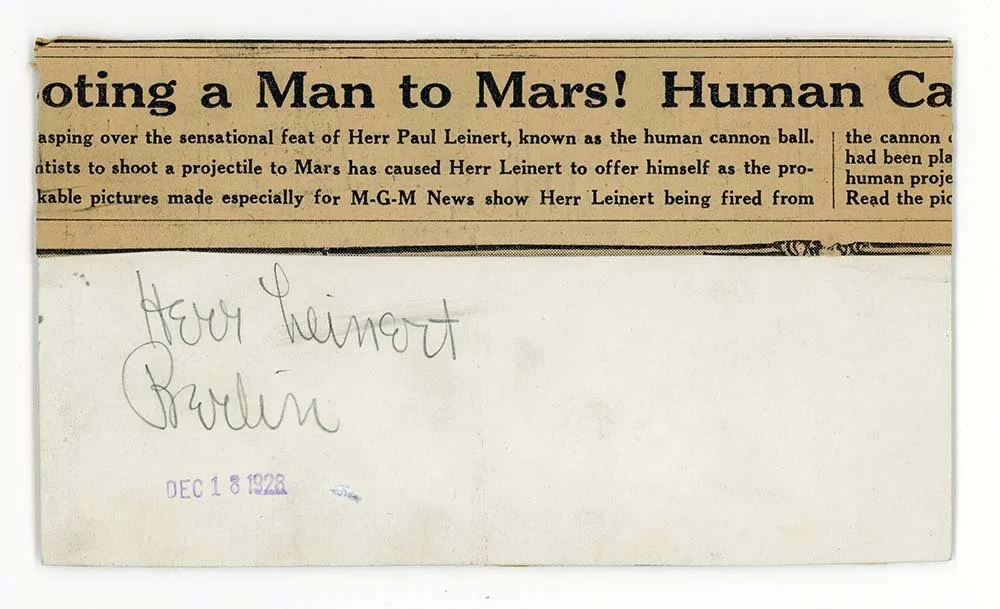 oting a Man to Mars! Human Ca
asping over the sensational feat of Herr Paul Leinert, known as the human cannon ball.
ntists to shoot a projectile to Mars has caused Herr Leinert to offer himself as the pro-
kable pictures made especially for M-G-M News show Herr Leinert being fired from
the cannon
had been pla
human proje
Read the pic
Herr Leinert
Berlin
DEC 18 1928